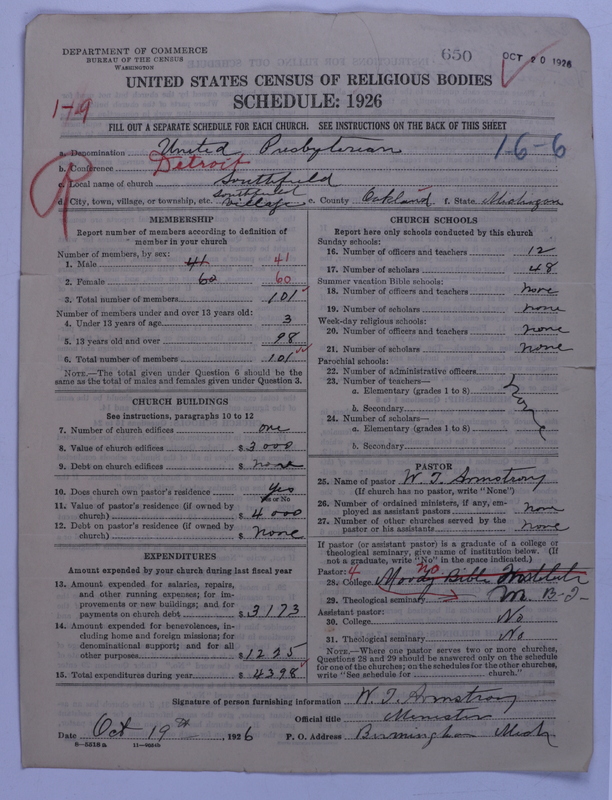 DEPARTMENT OF COMMERCE
BUREAU OF THE CENSUS
WASHINGTON
650
OCT 20 1926
UNITED STATES CENSUS OF RELIGIOUS BODIES
SCHEDULE: 1926
1-79
FILL OUT A SEPARATE SCHEDULE FOR EACH CHURCH. SEE INSTRUCTIONS ON THE BACK OF THIS SHEET
a. Denomination United Presbyterian
1-6-6
b. Conference Detroit
c. Local name of church Southfield
d. City, town, village, or township, etc. Southfield Village e. County Oakland f. State Michigan
MEMBERSHIP
Report number of members according to definition of
member in your church
Number of members, by sex:
1. Male 41 41
2. Female 60 60
3. Total number of members 101
Number of members under and over 13 years old:
4. Under 13 years of age 3
5. 13 years old and over 98
6. Total number of members 101
NOTE.—The total given under Question 6 should be
the same as the total of males and females given under Question 3.
CHURCH BUILDINGS
See instructions, paragraphs 10 to 12
7. Number of church edifices one
8. Value of church edifices $3000
9. Debt on church edifices $ none
10. Does church own pastor's residence Yes
Yes or No
11. Value of pastor's residence (if owned by
church) $4000
12. Debt on pastor's residence (if owned by
church) $ none
EXPENDITURES
Amount expended by your church during last fiscal year
13. Amount expended for salaries, repairs,
and other running expenses; for im-
provements or new buildings; and for
payments on church debt $3173
14. Amount expended for benevolences, in-
cluding home and foreign missions; for
denominational support; and for all
other purposes $1225
15. Total expenditures during year $4398
CHURCH SCHOOLS
Report here only schools conducted by this church
Sunday schools:
16. Number of officers and teachers 12
17. Number of scholars 48
Summer vacation Bible schools:
18. Number of officers and teachers none
19. Number of scholars none
Week-day religious schools:
20. Number of officers and teachers none
21. Number of scholars none
Parochial schools:
22. Number of administrative officers
23. Number of teachers—
a. Elementary (grades 1 to 8)
b. Secondary
none
24. Number of scholars—
a. Elementary (grades 1 to 8)
b. Secondary
PASTOR
25. Name of pastor W. T. Armstrong
(If church has no pastor, write "None")
26. Number of ordained ministers, if any, em-
ployed as assistant pastors none
27. Number of other churches served by the
pastor or his assistants none
If pastor (or assistant pastor) is a graduate of a college or
theological seminary, give name of institution below. (If
not a graduate, write "No" in the space indicated.)
Pastor: 4 no
28. College Moody Bible Institute
29. Theological seminary M. B-I-
Assistant pastor:
30. College No
31. Theological seminary No
NOTE.—Where one pastor serves two or more churches,
Questions 28 and 29 should be answered only on the schedule
for one of the churches; on the schedules for the other churches,
write "See schedule for church."
Signature of person furnishing information W. T. Armstrong
Official title Minister
Date Oct 19th, 1926 P. O. Address Birmingham Mich
8—5518a 11—9554b